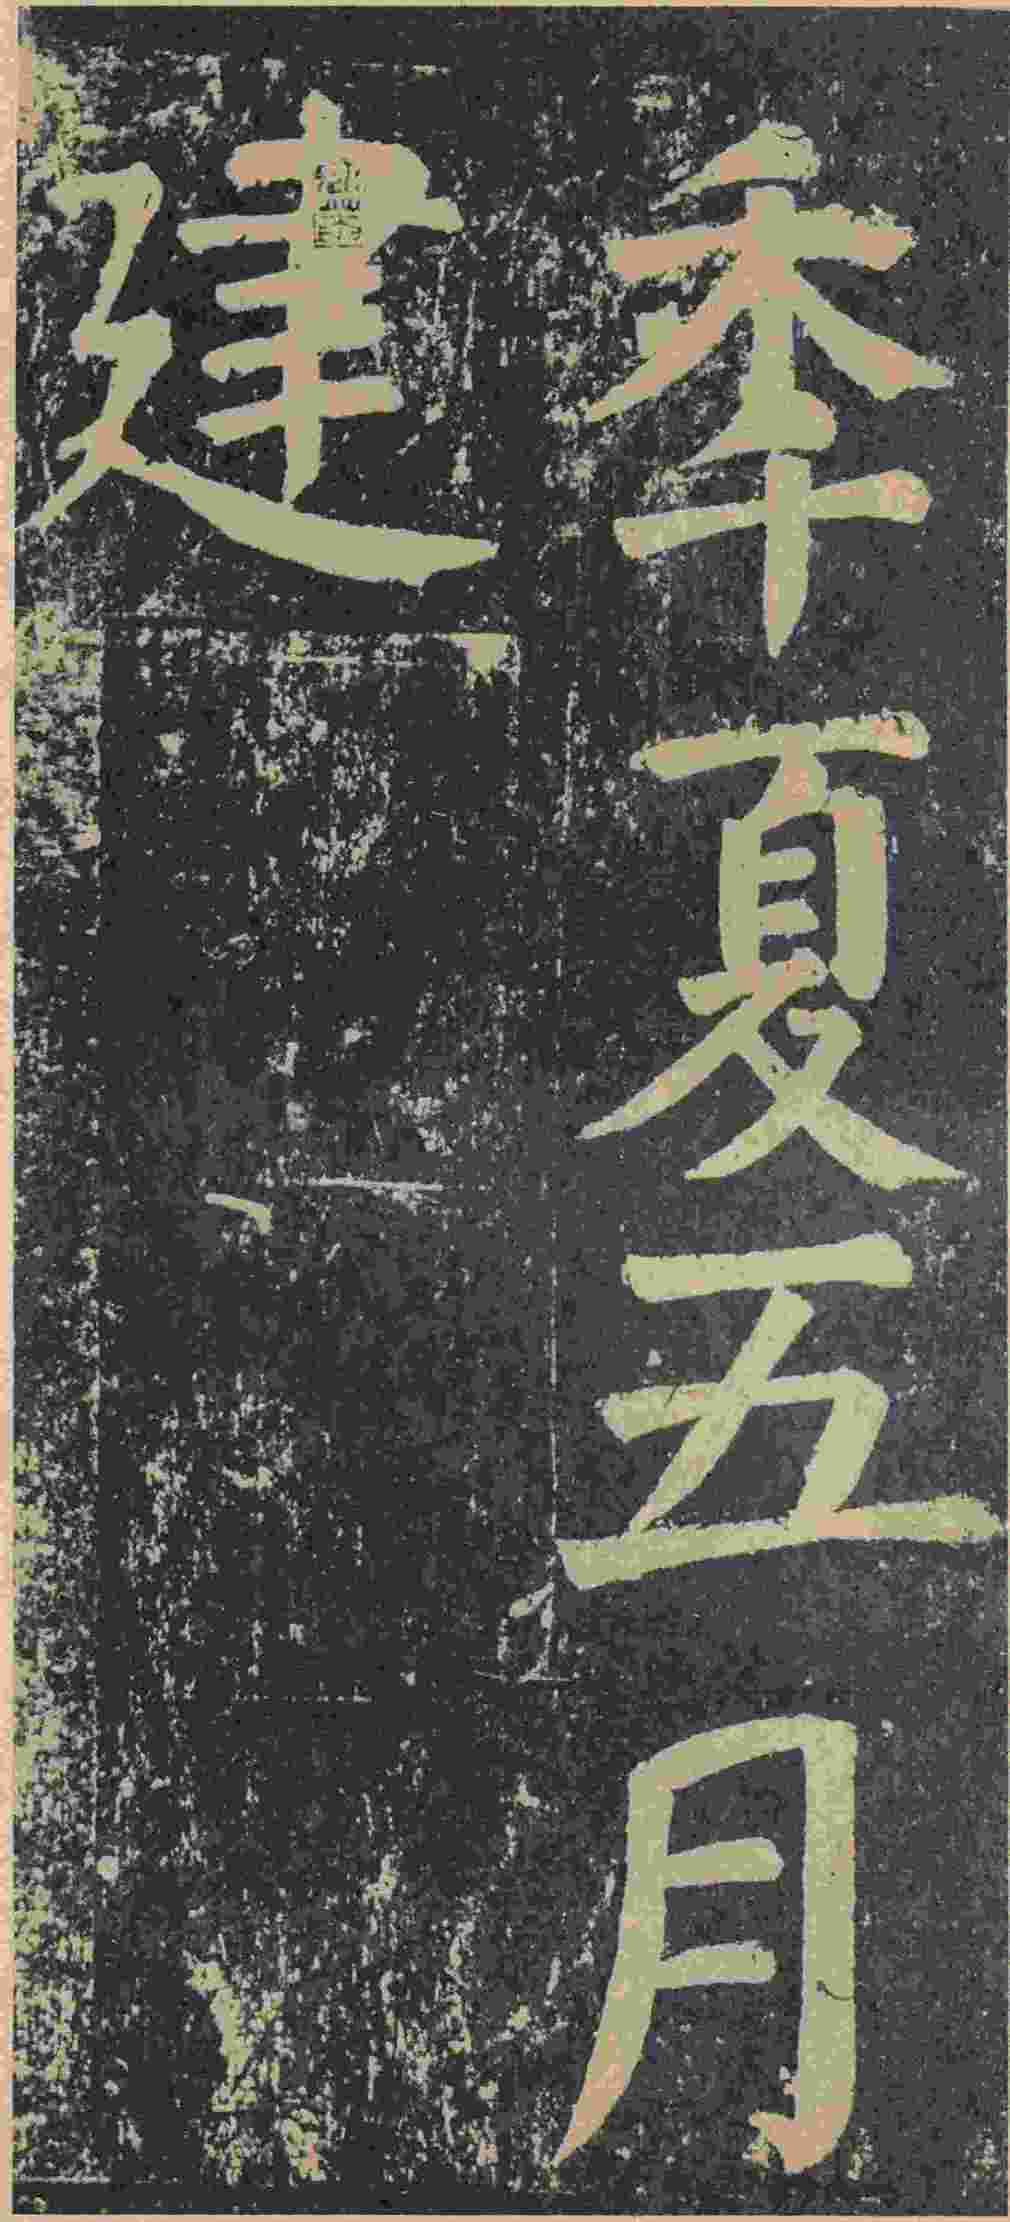 季夏五月
建